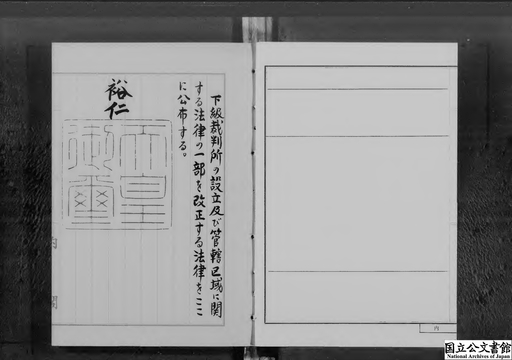 下級裁判所の設立及び管轄区域に関
する法律の一部を改正する法律をここ
に公布する。
裕仁
天皇
御璽
内
閣
国立公文書館
National Archives of Japan